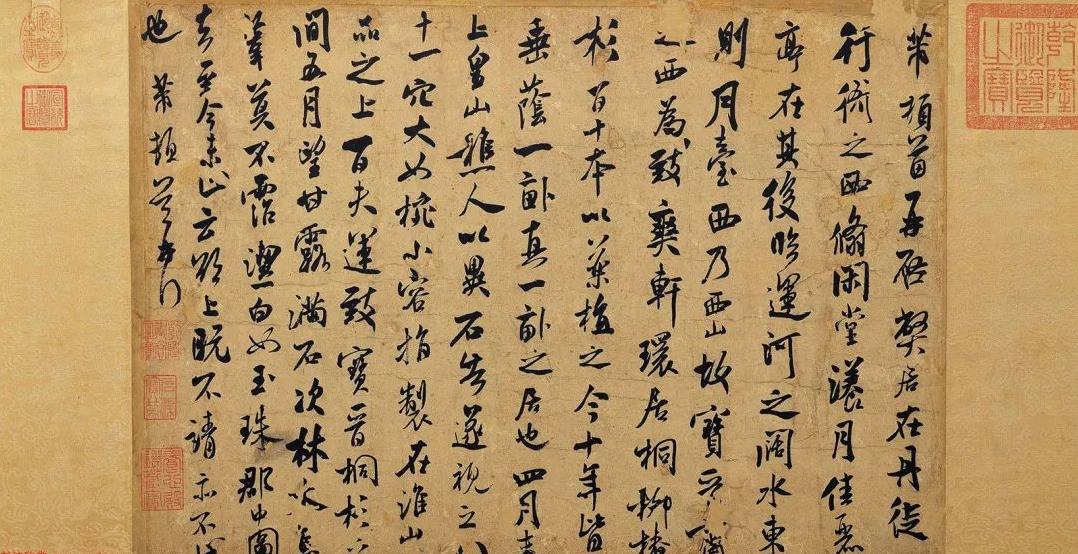 乾隆御覽之寶
芾頓首再啓弊居在丹徒
行衙之西翛閑堂漾月佳麗
亭在其後臨運河之闊水東
則月臺西乃西山故寶晉齋
之西為致爽軒環居桐柳椿
杉百十本以藥植之今十年皆
垂蔭一畝真一畝之居也四月
上皇山樵人以異石告遂視之八
十一穴大如椀小容指製在淮山
一品之上百夫運致寶晉桐杉之
間五月望甘露滿石次林木焉
草莫不霑潔白如玉珠郡中圖
去至今未止云欲上既不請亦不
也芾頓首